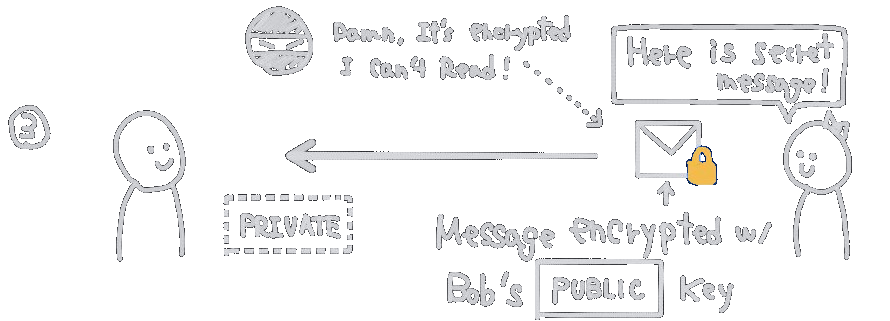 Damn, It's encrypted
I can't Read!
Here is secret
message!
3
PRIVATE
Message encrypted w/
Bob's PUBLIC key